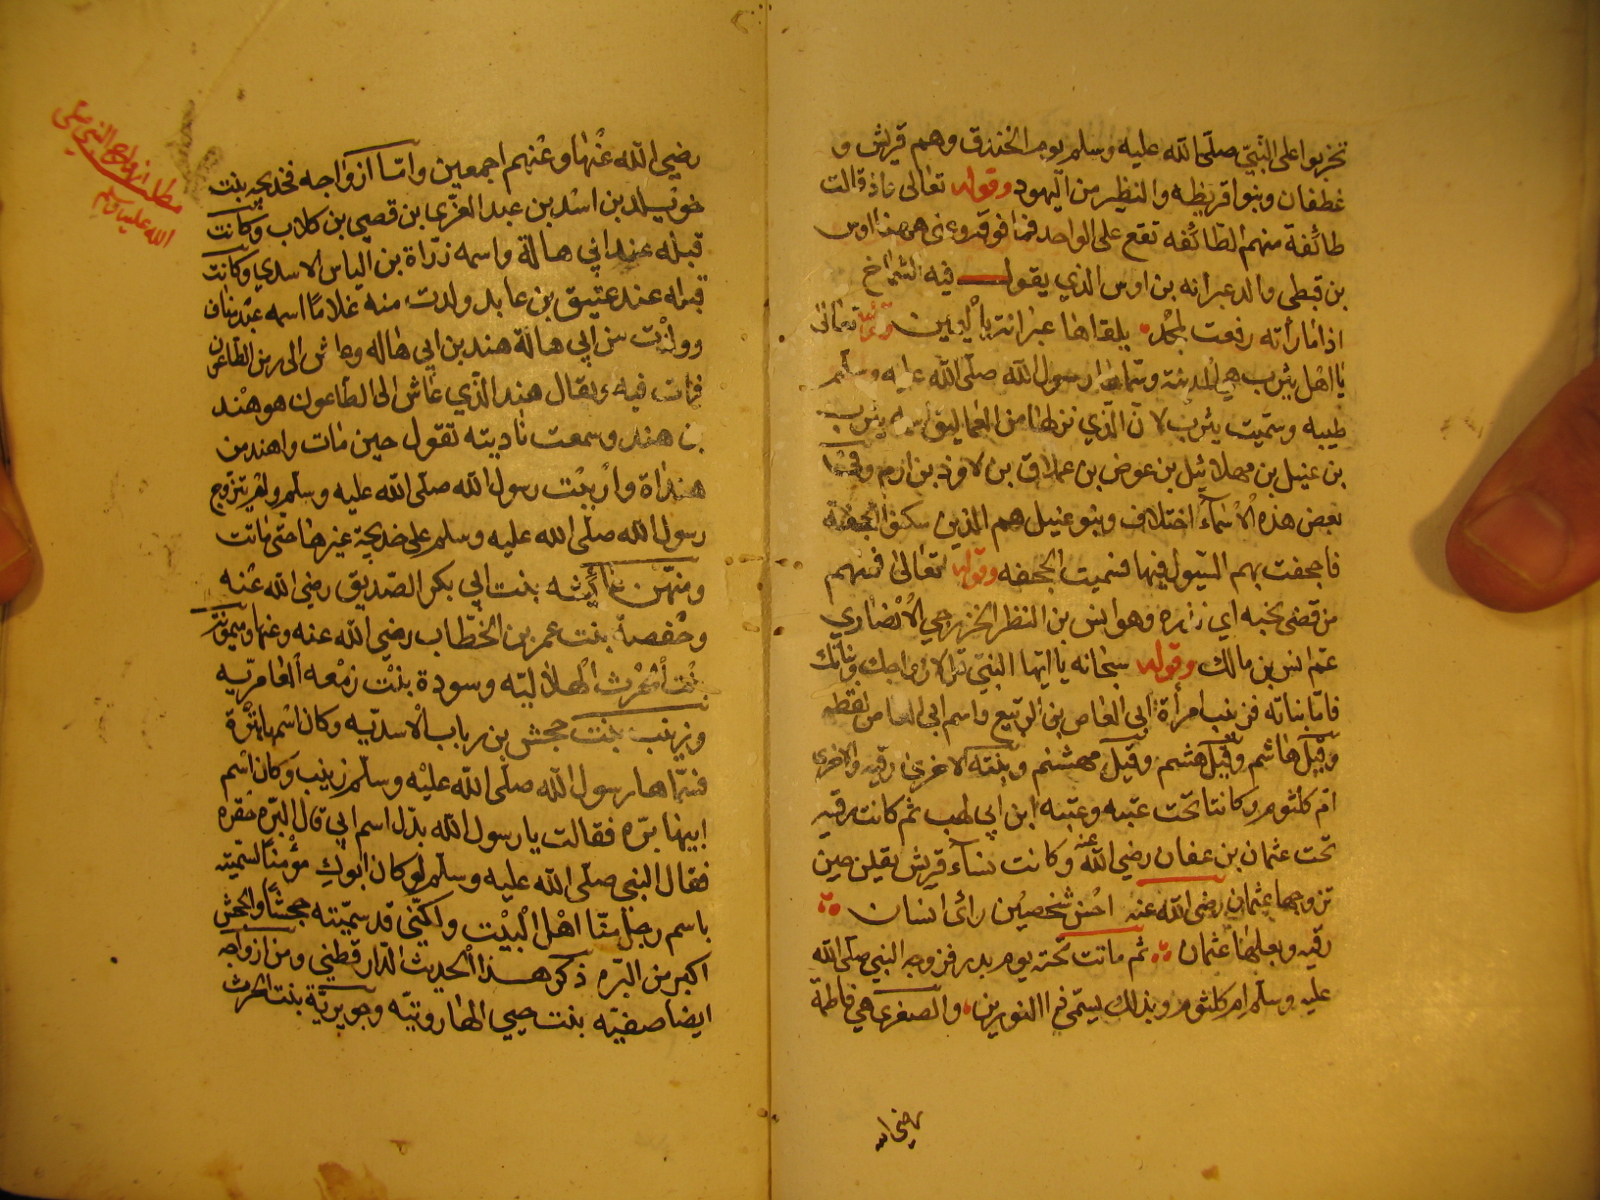 تحزبوا على النبي صلى الله عليه وسلم يوم الخندق وهم قريش و
غطفان وبنوا قريظه والنظير من اليهود وقوله تعالى واذ قالت
طائفة منهم الطائفه تقع على الواحد فما فوقه وعني هي هنا اوس
بن قبطي والد عرابه بن اوس الذي يقول فيه الشماخ
اذا ما رأته رفعت لمجد يلقاها عرابة باليمين وقوله تعالى
يا اهل يثرب هي المدينة وسماها رسول الله صلى الله عليه وسلم
طيبه وسميت يثرب لان الذي نزلها من العماليق اسمه يثرب
بن عبيل بن مهلائيل بن عوض بن عملاق بن لاوذ بن ارم وفي
بعض هذه الأسمآء اختلاف وبنو عبيل هم الذين سكنوا الجحفة
فاجحفت بهم السيول فيها فسميت الجحفه وقوله تعالى فمنهم
من قضى نحبه اي نذره وهو انس بن النظر الخزرجي الأنصاري
عم انس بن مالك وقوله سبحانه يا ايها النبي قل لازواجك وبناتك
فاما بناته فزينب امرأة ابي العاص بن الربيع واسم ابي العاص لقيط
وقيل هاشم وقيل هشم وقيل مهشم وبنته الاخرى رقيه والاخرى
ام كلثوم وكانتا تحت عتبه وعتيبه ابن ابي لهب ثم كانت رقيه
تحت عثمان بن عفان رضي الله عنه وكانت نسآء قريش يقلن حين
تزوجها عثمان رضى الله عنه احسن شخصين رأى انسان
رقيه وبعلها عثمان ثم ماتت تحته يوم بدر فزوجه النبي صلى الله
عليه وسلم ام كلثوم وبذلك يسمى ذا النورين والصغرى هي فاطمة
رضي الله
رضي الله عنها وعنهم اجمعين واما ازواجه فخديجه بنت
خويلد بن اسد بن عبد العزى بن قصي بن كلاب وكانت
قبله عند ابي هالة واسمه زرارة بن الياس الاسدي وكانت
قبله عند عتيق بن عابد ولدت منه غلاما اسمه عبد مناف
وولدت من ابي هالة هند بن ابي هاله وعاش الى زمن الطاعون
فمات فيه ويقال هند الذي عاش الى الطاعون هو هند
بن هند وسمعت ناديته تقول حين مات واهند بن
هنداه واربيت رسول الله صلى الله عليه وسلم ولم يتزوج
رسول الله صلى الله عليه وسلم على خديجة غيرها حتى ماتت
ومنهن عائشه بنت ابي بكر الصديق رضي الله عنه
وحفصة بنت عمر بن الخطاب رضي الله عنه وعنها وميمونة
بنت الحرث الهلاليه وسودة بنت زمعه العامريه
وزينب بنت جحش بن رياب الاسديه وكان اسمها برة
فسماها رسول الله صلى الله عليه وسلم زينب وكان اسم
ابيها بره فقالت يا رسول الله بدل اسم ابي فان البره حقره
فقال النبي صلى الله عليه وسلم لو كان ابوك مؤمنا لسميته
باسم رجل منا اهل البيت ولكني قد سميته جحشا والجحش
اكبر من البره ذكر هذا الحديث الدارقطني ومن ازواجه
ايضا صفيه بنت حيي الهارونيه وجويرية بنت الحرث
مطلب ازواج النبي صلى
الله عليه وسلم